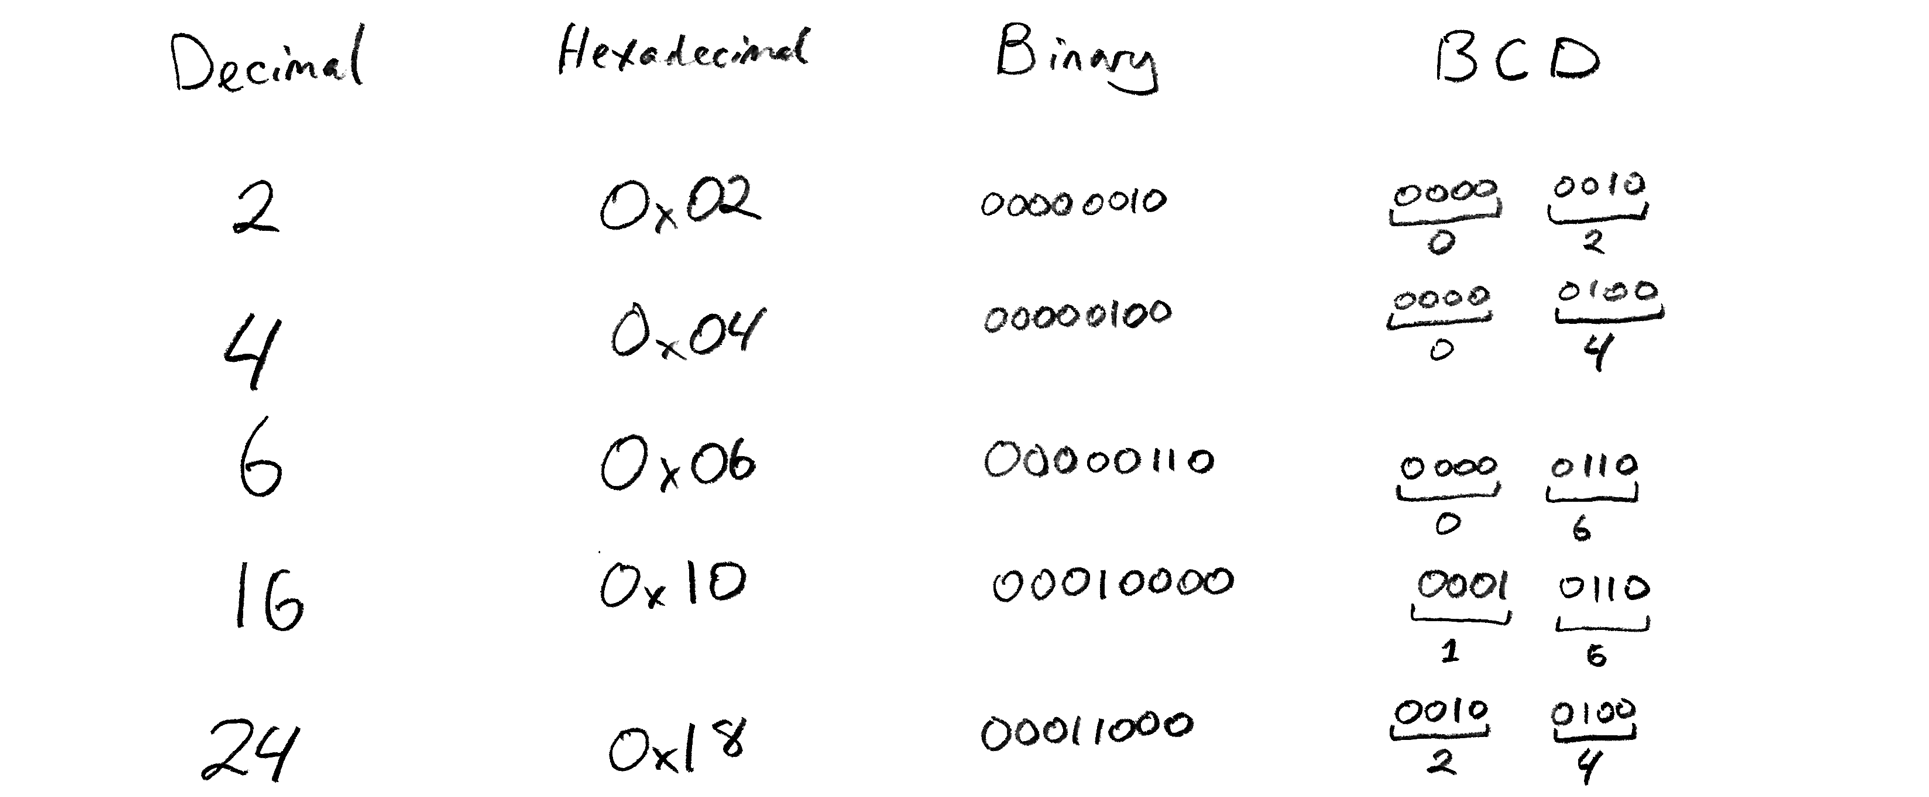 Decimal Hexadecimal Binary BCD
2 0x02 00000010 0000 0010
0 2
4 0x04 00000100 0000 0100
0 4
6 0x06 00000110 0000 0110
0 6
16 0x10 00010000 0001 0110
1 6
24 0x18 00011000 0010 0100
2 4